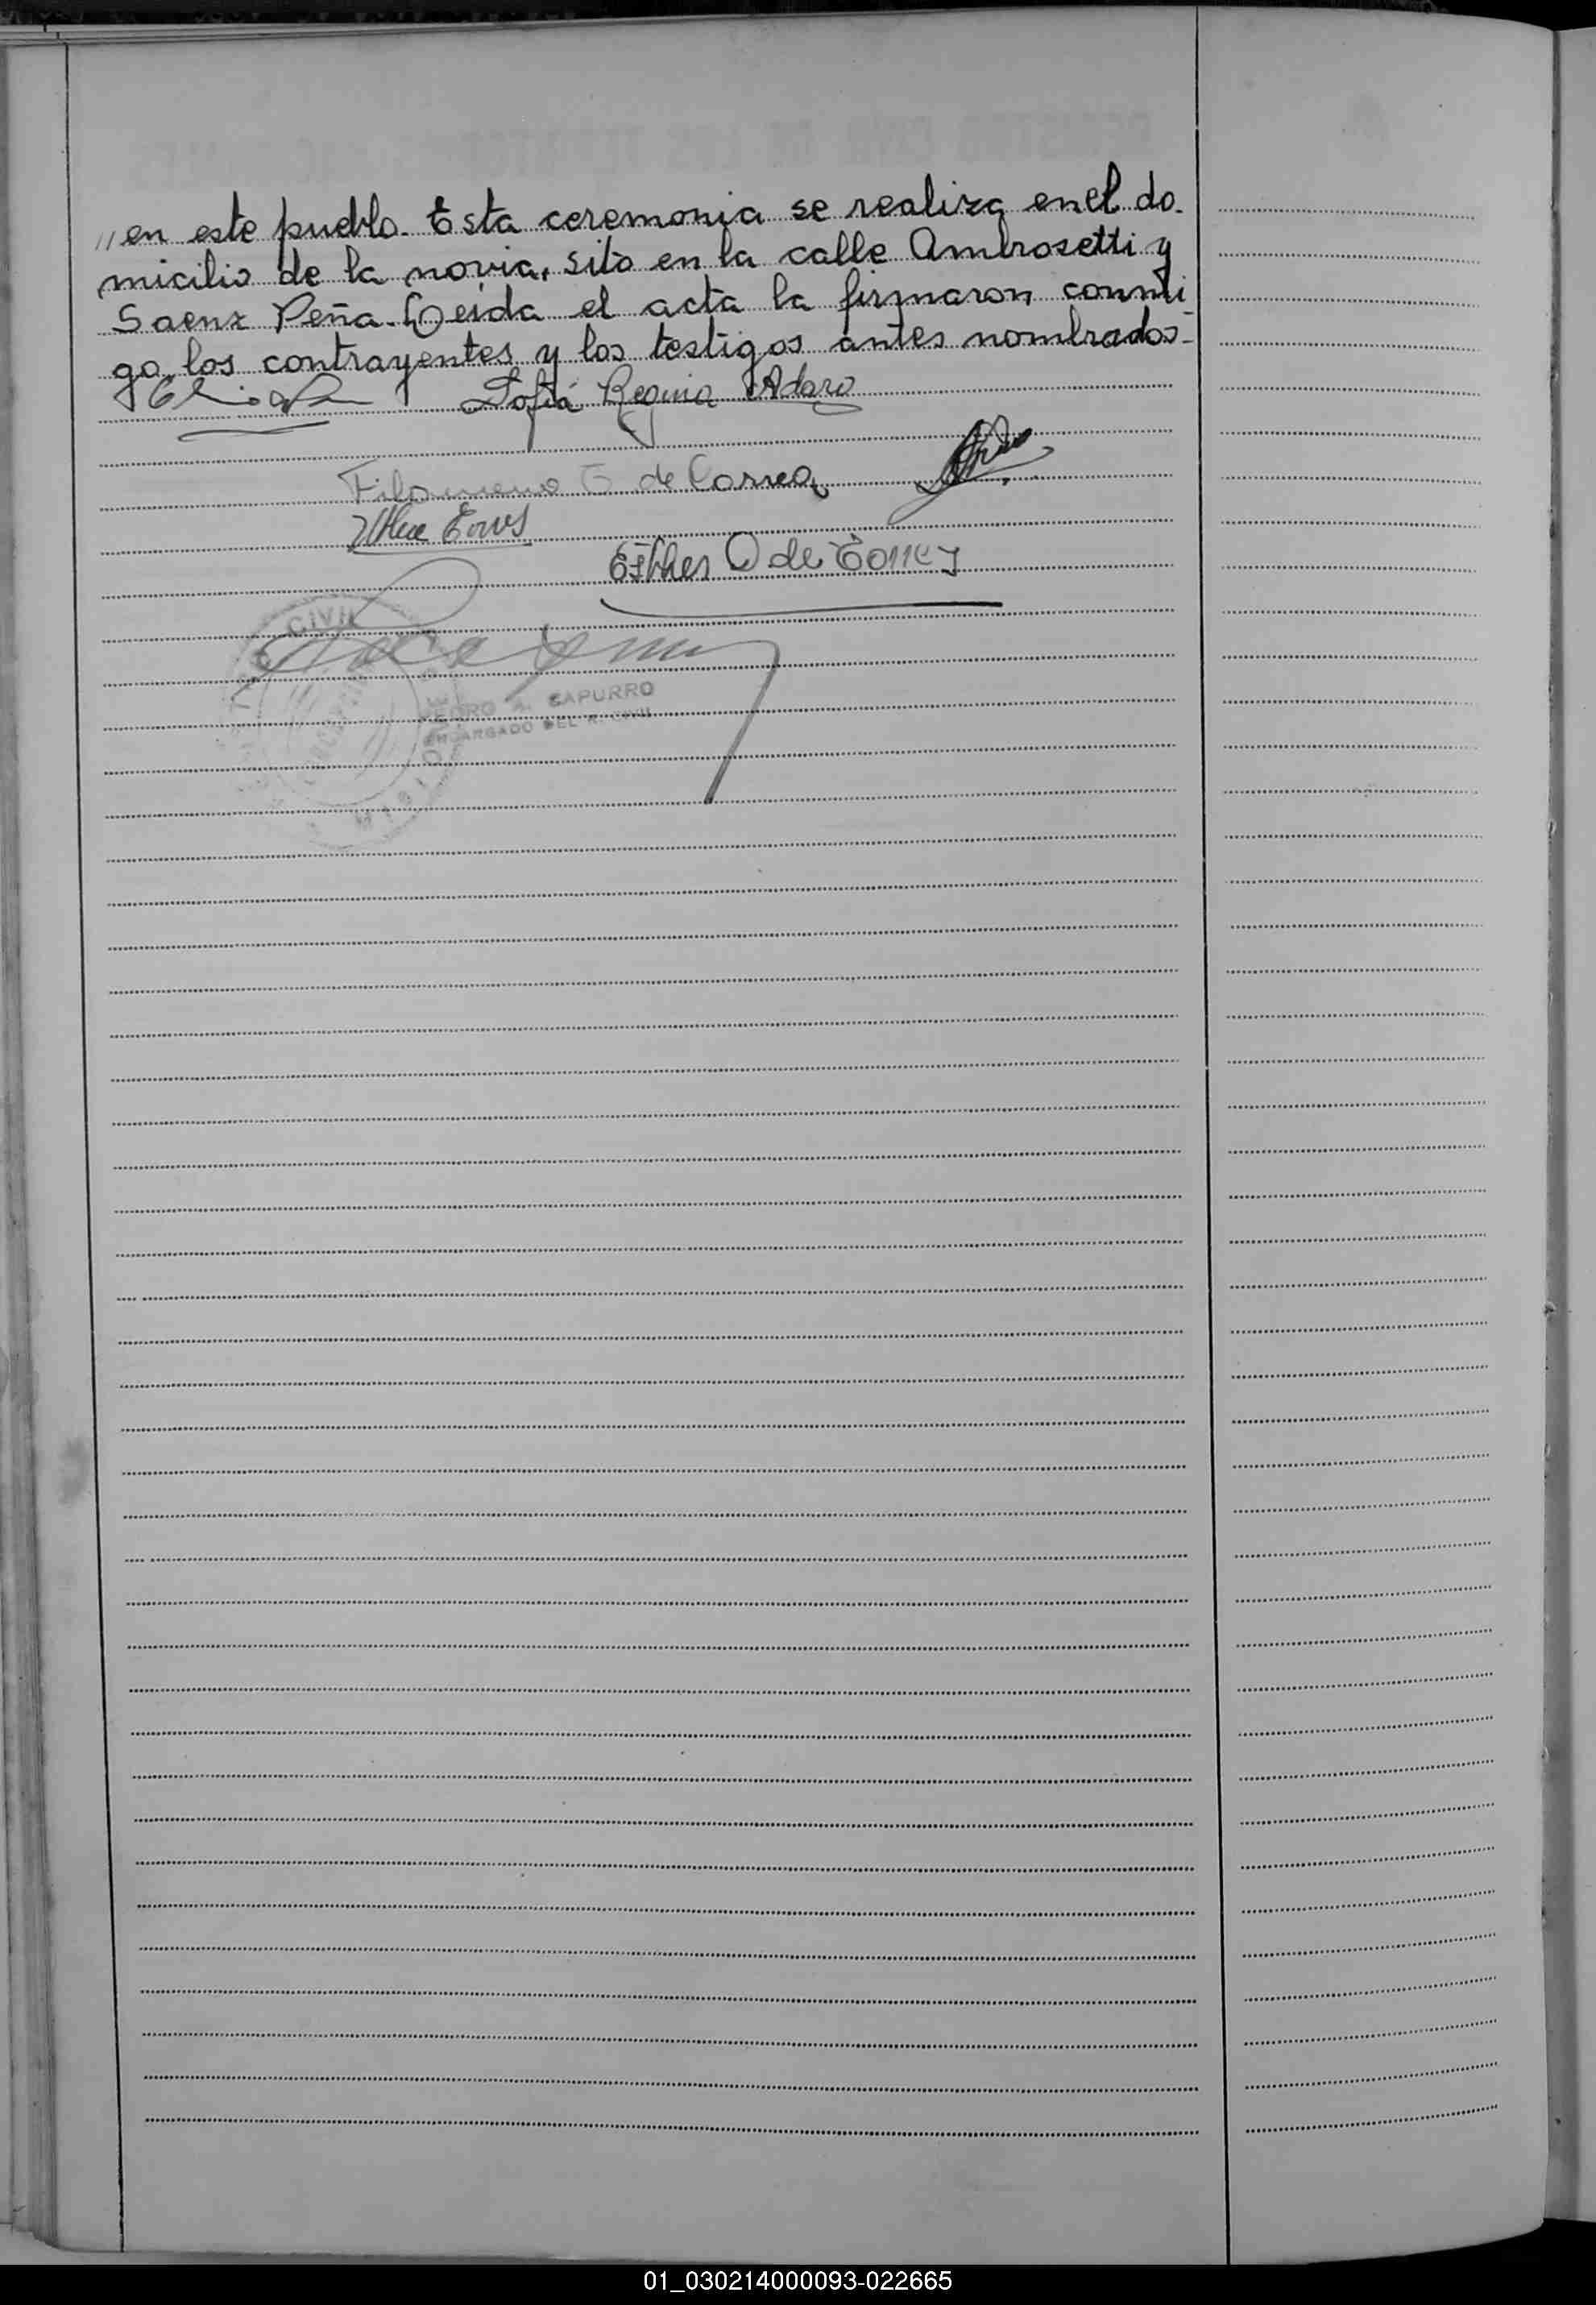 // en este pueblo. Esta ceremonia se realiza en el do-
micilio de la novia, sito en la calle Ambrosetti y
Saenz Peña. Leida el acta la firmaron conmi-
go los contrayentes y los testigos antes nombrados-
Sofía Regina Adaro
Filomena G de Correa
Esther O de
CIVIL
PEDRO A. SAPURRO
ENCARGADO DEL R. CIVIL
01_030214000093-022665